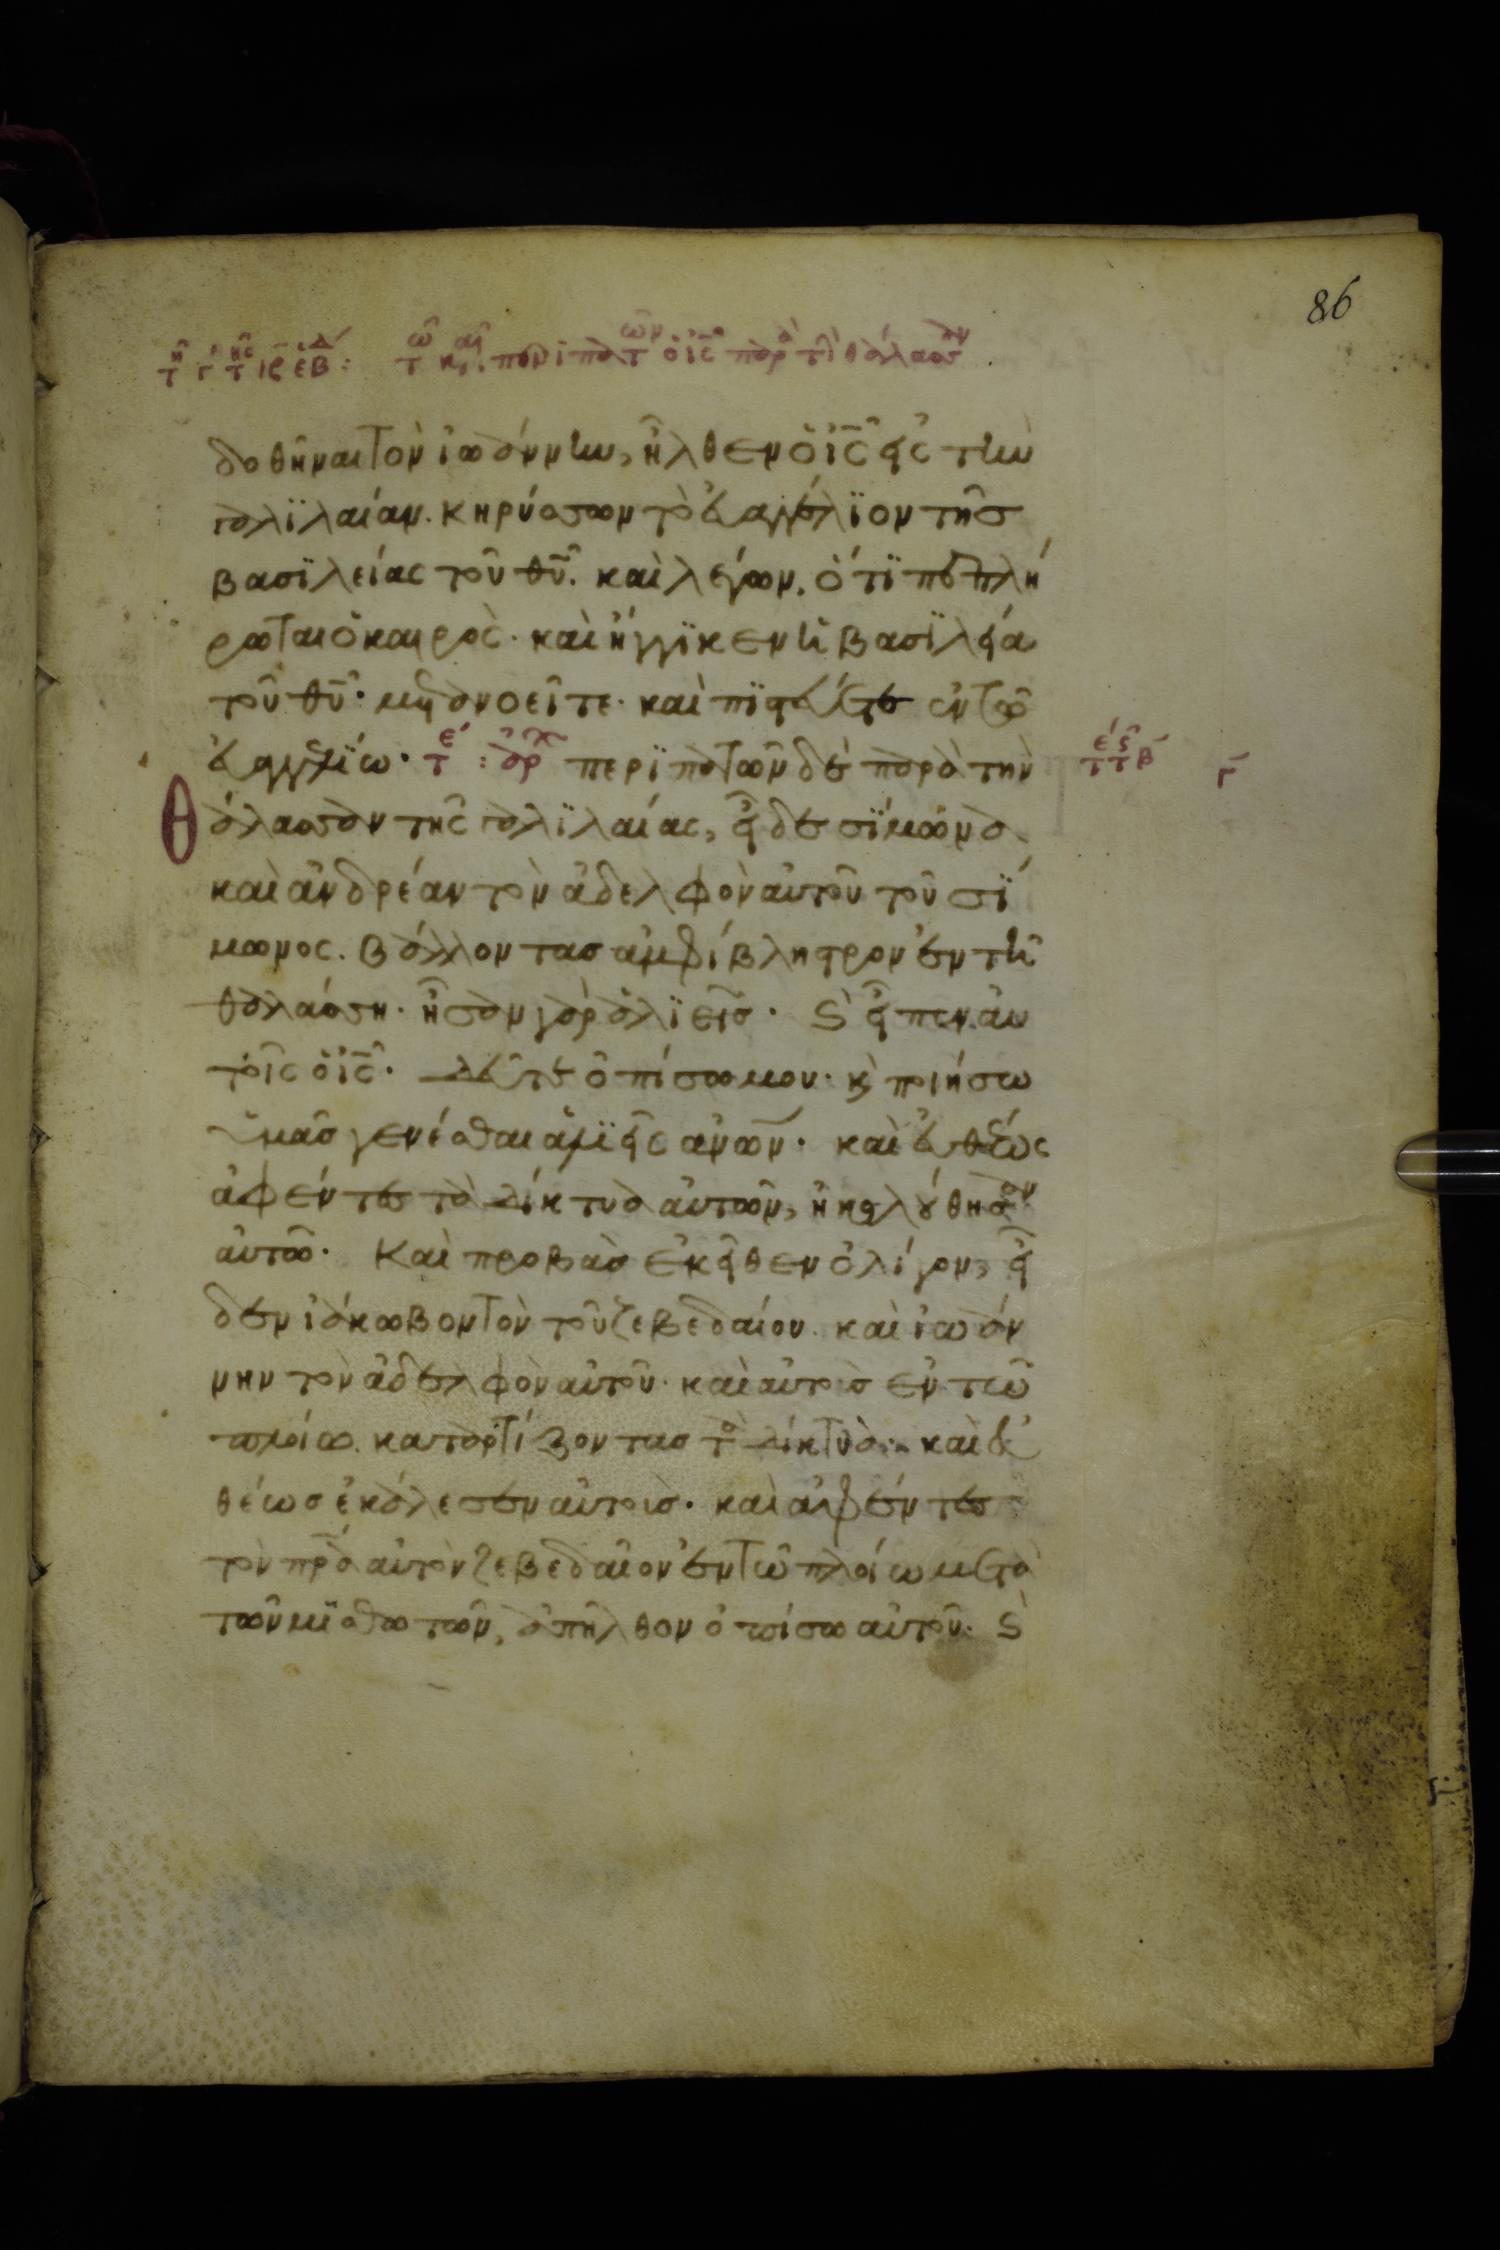 86
τῇ γ τῆς ις ἑβδ: τῶ καιρ. περιπατῶν ὁ ις παρὰ τὴ θάλασσαν
δοθῆναι τὸν ἰωάννην, ἦλθεν ὁ ις εἰς τὴν
γαλϊλαίαν. κηρύσσων τὸ εὐαγγέλϊον τῆσ
βασϊλείας τοῦ θυ. καὶ λέγων. ὅτϊ πεπλή
ρωται ὁ καιρὸς. καὶ ἤγγϊκεν ἡ βασϊλεία
τοῦ θυ. μετανοεῖτε. καὶ πϊστεύετε ἐν τῶ
εὐαγγελϊω. τε : ἀρχ περϊπατῶν δὲ παρὰ τὴν
τε τς β γ
θάλασσαν τῆς γαλϊλαίας, εἶδε σϊμωνα
καὶ ἀνδρέαν τὸν ἀδελφὸν αὐτοῦ τοῦ σϊ
μωνος. βάλλοντασ ἀμφίβληστρον ἐν τῆ
θαλάσση. ἦσαν γὰρ ἁλϊεῖσ. καὶ εἶπεν αὐ
τοῖς ὁ ις. δεῦτε ὀπίσω μου. καὶ ποιήσω
ὑμᾶσ γενέσθαι ἁλϊεῖς ανων. καὶ εὐθέως
ἀφέντες τὰ δίκτυα αὐτῶν, ἠκολούθησαν
αὐτῶ. Καὶ προβὰσ ἐκεῖθεν ὀλίγον, εἶ
δεν ἰάκωβον τὸν τοῦ ζεβεδαίου. καὶ ἰωάν
νην τὸν ἀδελφὸν αὐτοῦ. καὶ αὐτοὺσ ἐν τῶ
πλοίω. καταρτίζοντασ τὰ δίκτυα. καὶ εὐ
θέωσ ἐκάλεσεν αὐτουσ. καὶ ἀφέντες
τὸν πρα αὐτὸν ζεβεδαῖον ἐν τῶ πλοίω μετὰ
τῶν μϊσθωτῶν, ἀπῆλθον ὀπίσω αὐτοῦ. καὶ